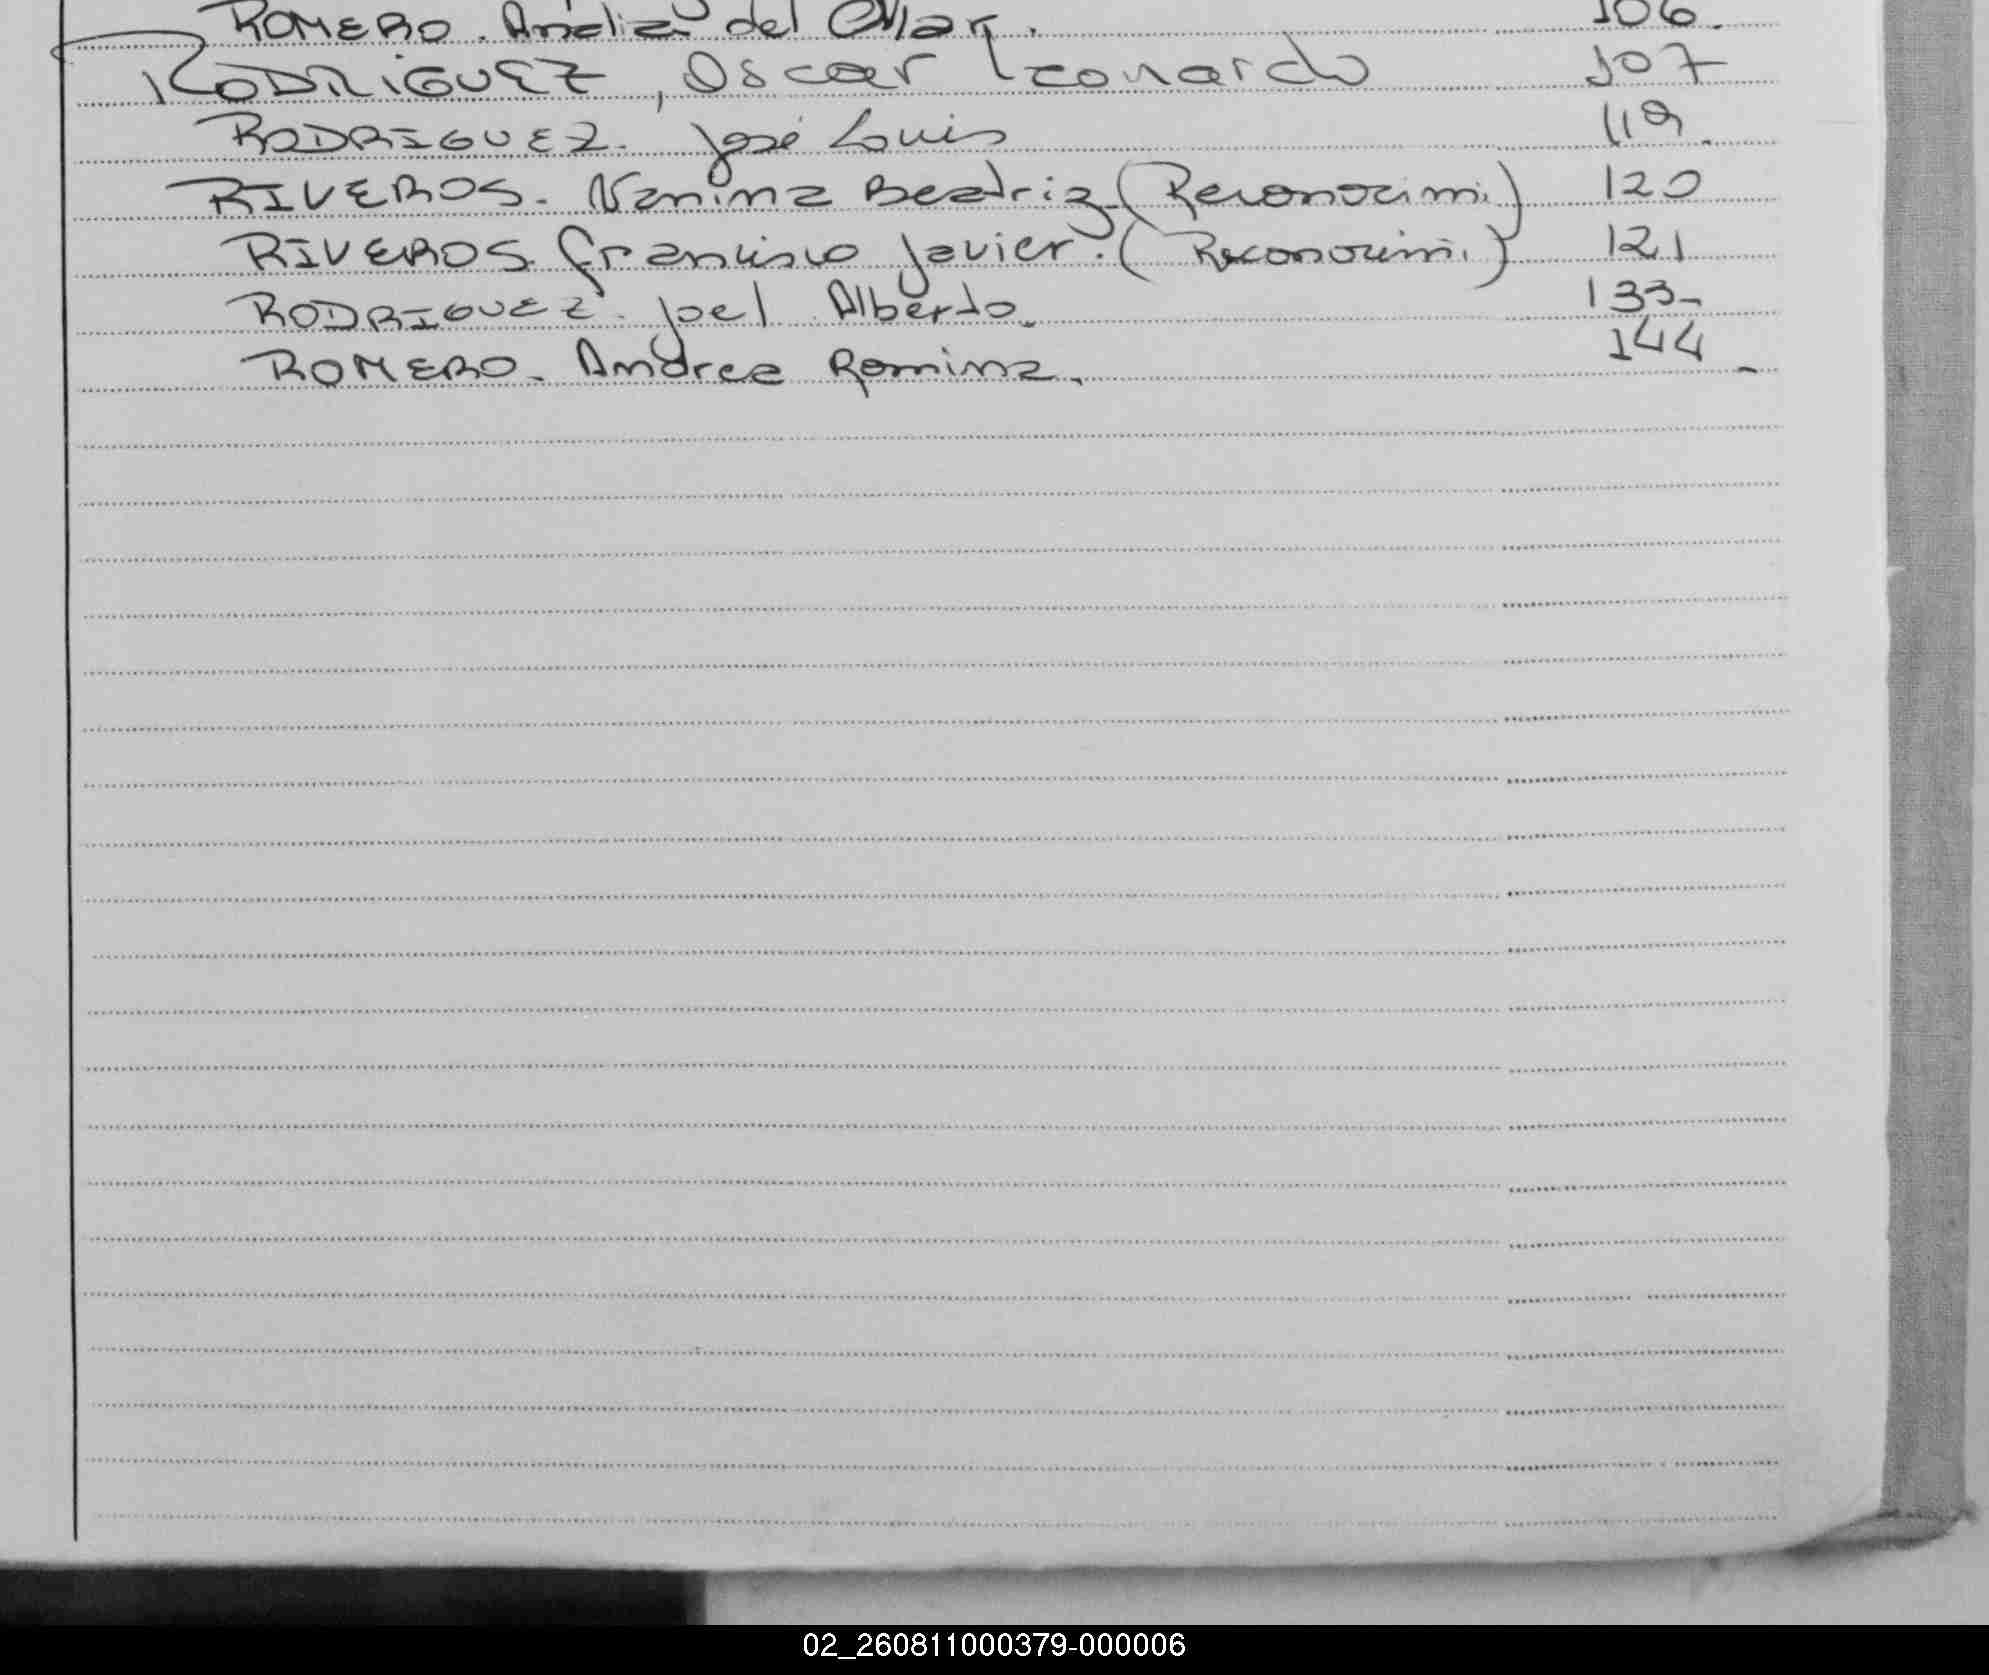 ROMERO. Analia del Mar. 106.
RODRIGUEZ, Oscar Leonardo 107
RODRIGUEZ. José Luis 119.
RIVEROS. Nanina Beatriz. (Reconocimi.) 120
RIVEROS. Francisco Javier. (Reconocimi.) 121
RODRIGUEZ. Joel Alberto. 133-
ROMERO. Andrea Romina. 144-
02_260811000379-000006